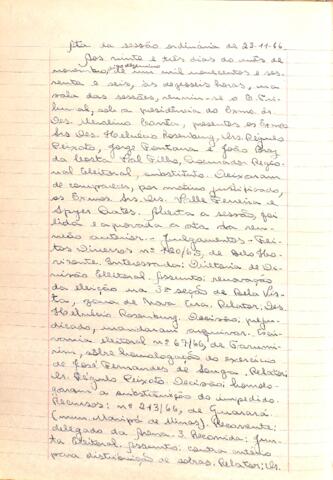 Ata da sessão ordinária de 23-11-66.
Aos vinte e três dias do mês de
novembro de um mil novecentos e ses-
senta e seis, às dezesseis horas, na
sala das sessões, reuniu-se o E. Tri-
bunal, sob a presidência do Exmo. Sr.
Des. presentes os Exmos.
Srs. Des. Helvécio Rosenburg, Drs. Régulo
Peixoto, Jorge Fontana e João Braz
da Costa Val Filho, Procurador Regio-
nal Eleitoral, substituto. Deixaram
de comparecer, por motivo justificado,
os Exmos. Srs. Des. Valle Ferreira e
Aberta a sessão, foi
lida e aprovada a ata da reu-
nião anterior. - Julgamentos - Fei-
tos Diversos nº de Belo Ho-
rizonte. Interessada: Diretoria de Di-
visão Eleitoral. Assunto: renovação
da eleição na 3ª seção de Bela Vis-
ta, zona de Nova Era. Relator: Des.
Helvécio Rosenburg. Decisão: preju-
dicado, mandaram arquivar. Escri-
vania eleitoral nº 67/66, de Tarumi-
rim, sobre homologação do exercício
de José Fernandes de Souza. Relator:
Dr. Régulo Peixoto. Decisão: homolo-
garam a substituição do impedido.
Recursos: nº 213/66, de Guarará
(mun. Maripá de Minas). Recorrente:
delegado da Arena-3. Recorrida: Jun-
ta Eleitoral. Assunto: contra critério
para distribuição de sobras. Relator: Dr.